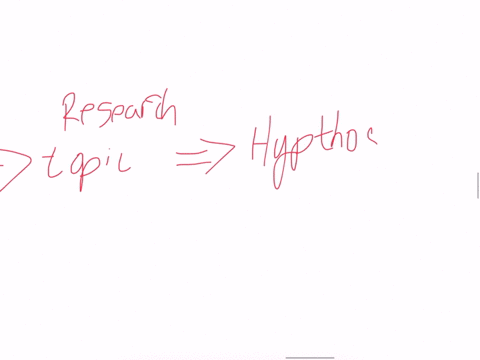 Research
topic ⇒ Hypthos